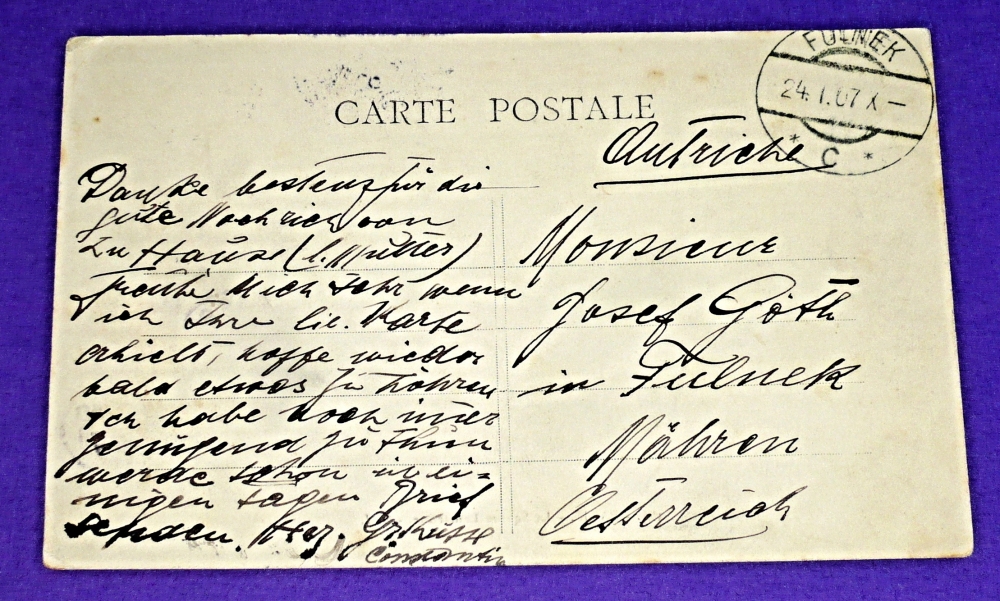 CARTE POSTALE
FULNEK
24.I.07 X-
* C *
Autriche
Danke bestens für die
gute Nachricht von
zu Hause (l. Mutter)
freute mich sehr wenn
ich Ihre lie. Karte
erhielt, hoffe wieder
bald etwas zu höhren
Ich habe noch immer
genügend zu thun
werde schon in ei-
nigen tagen Brief
senden. Hrz. Gr. Küsse
Constantin
Monsieur
Josef Göth
in Fulnek
Mähren
Oesterreich